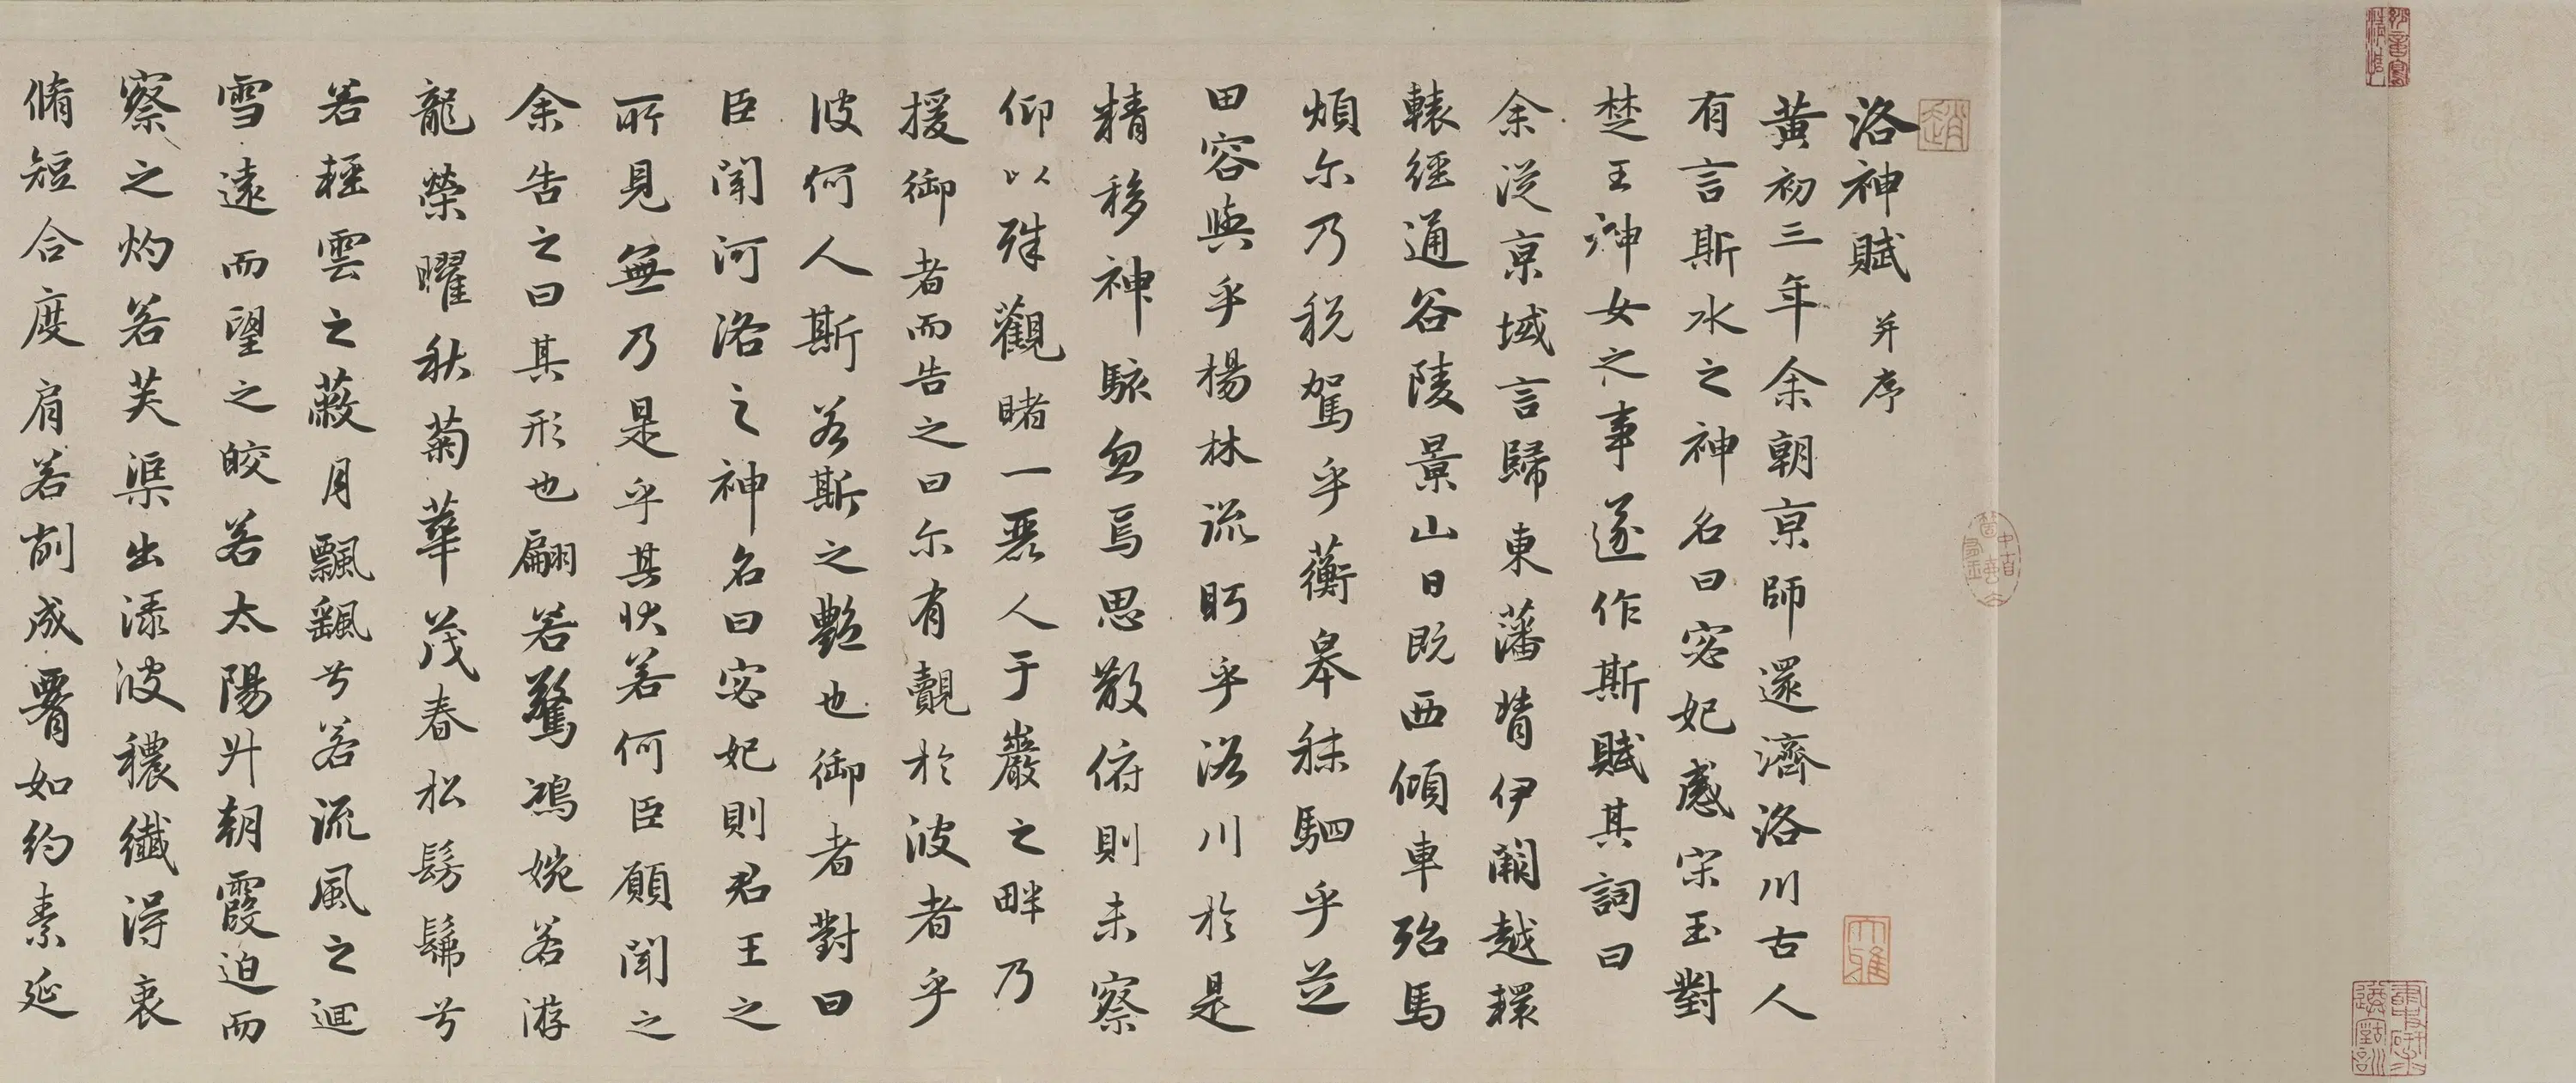 洛神賦 并序
黃初三年余朝京師還濟洛川古人
有言斯水之神名曰宓妃感宋玉對
楚王神女之事遂作斯賦其詞曰
余從京域言歸東藩背伊闕越轘
轅經通谷陵景山日既西傾車殆馬
煩尔乃稅駕乎蘅皋秣駟乎芝
田容與乎楊林流眄乎洛川於是
精移神駭忽焉思散俯則未察
仰以殊觀睹一麗人于巖之畔乃
援御者而告之曰尔有覿於彼者乎
彼何人斯若斯之艷也御者對曰
臣聞河洛之神名曰宓妃則君王之
所見無乃是乎其狀若何臣願聞之
余告之曰其形也翩若驚鴻婉若游
龍榮曜秋菊華茂春松髣髴兮
若輕雲之蔽月飄颻兮若流風之迴
雪遠而望之皎若太陽升朝霞迫而
察之灼若芙渠出淥波穠纖得衷
脩短合度肩若削成署如約素延
趙
大雅